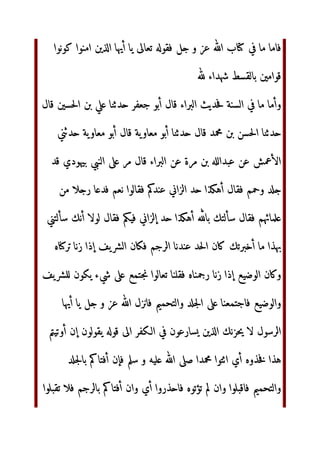 فاما ما في كتاب الله عز و جل فقوله تعالى يا أيها الذين امنوا كونوا
قوامين بالقسط شهداء لله
وأما ما في السنة فحديث البراء قال أبو جعفر حدثنا علي بن الحسين قال
حدثنا الحسن بن محمد قال حدثنا أبو معاوية قال أبو معاوية حدثني
الأعمش عن عبدالله بن مرة عن البراء قال مر على النبي بيهودي قد
جلد وحمم فقال أهكذا حد الزاني عندكم فقالوا نعم فدعا رجلا من
علمائهم فقال سألتك بالله أهكذا حد إلزاني فيكم فقال لولا أنك سألتني
بهذا ما أخبرتك كان الحد عندنا الرجم فكان الشريف إذا زنا تركناه
وكان الوضيع إذا زنا رجمناه فقلنا تعالوا نجتمع على شيء يكون للشريف
والوضيع فاجتمعنا على الجلد والتحميم فانزل الله عز و جل يا أيها
الرسول لا يحزنك الذين يسارعون في الكفر الى قوله يقولون إن أوتيتم
هذا فخذوه أي ائتوا محمدا صلى الله عليه و سلم فإن أفتاكم بالجلد
والتحميم فاقبلوا وان لم تؤتوه فاحذروا أي وان أفتاكم بالرجم فلا تقبلوا